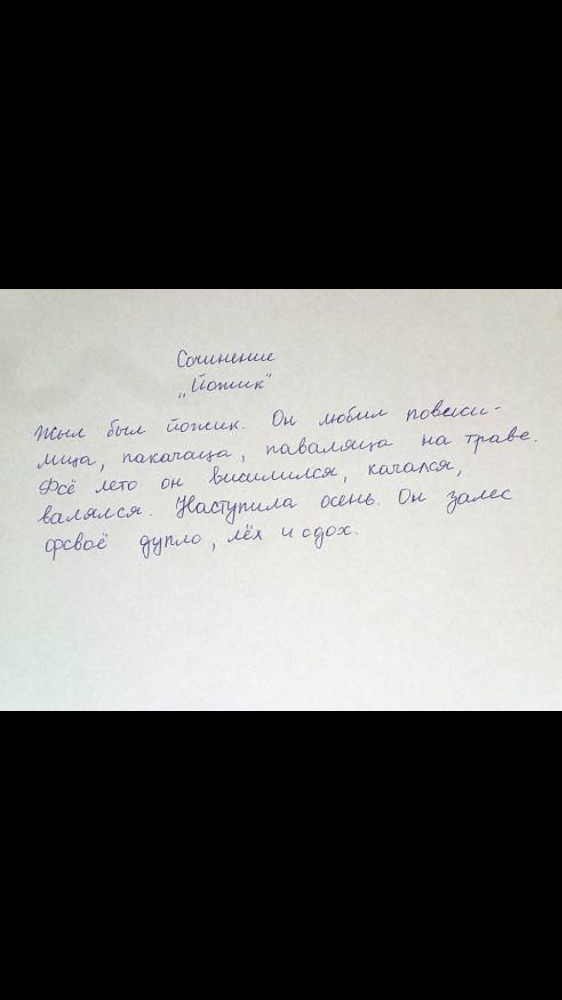 Сочинение
„Йожик"
Жыл был йожик. Он любил повесили-
лица, пакачаца, паваляца на траве.
Фсё лето он висимился, качался,
валялся. Наступила осень. Он залес
фсваё дупло, лёх и одох.